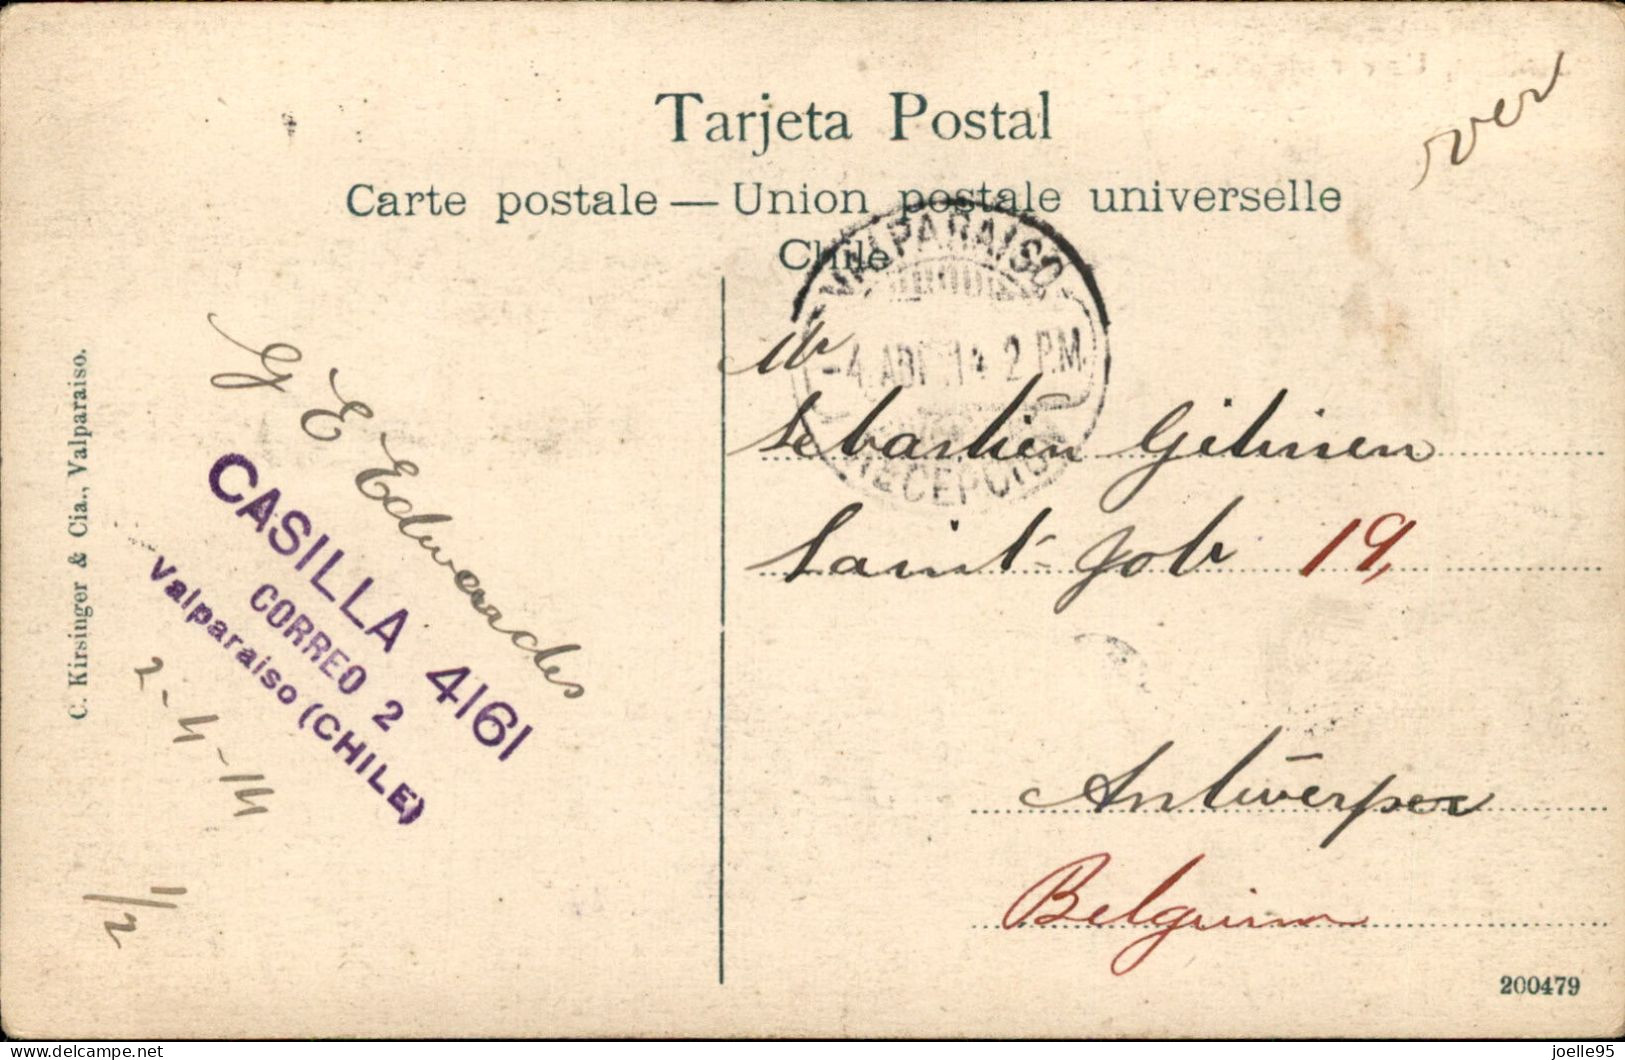 Tarjeta Postal
Carte postale — Union postale universelle
Chile
ver
VALPARAISO
-4 ABR. 14 2 P.M.
RECEPCION
C. Kirsinger & Cia., Valparaiso.
G E Edwardes
CASILLA 4161
CORREO 2
Valparaiso (CHILE)
2-4-14
1/2
Mr
Sebastien
Saint-Job 19,
Antwerpen
Belgium
200479
delcampe.net
joelle95